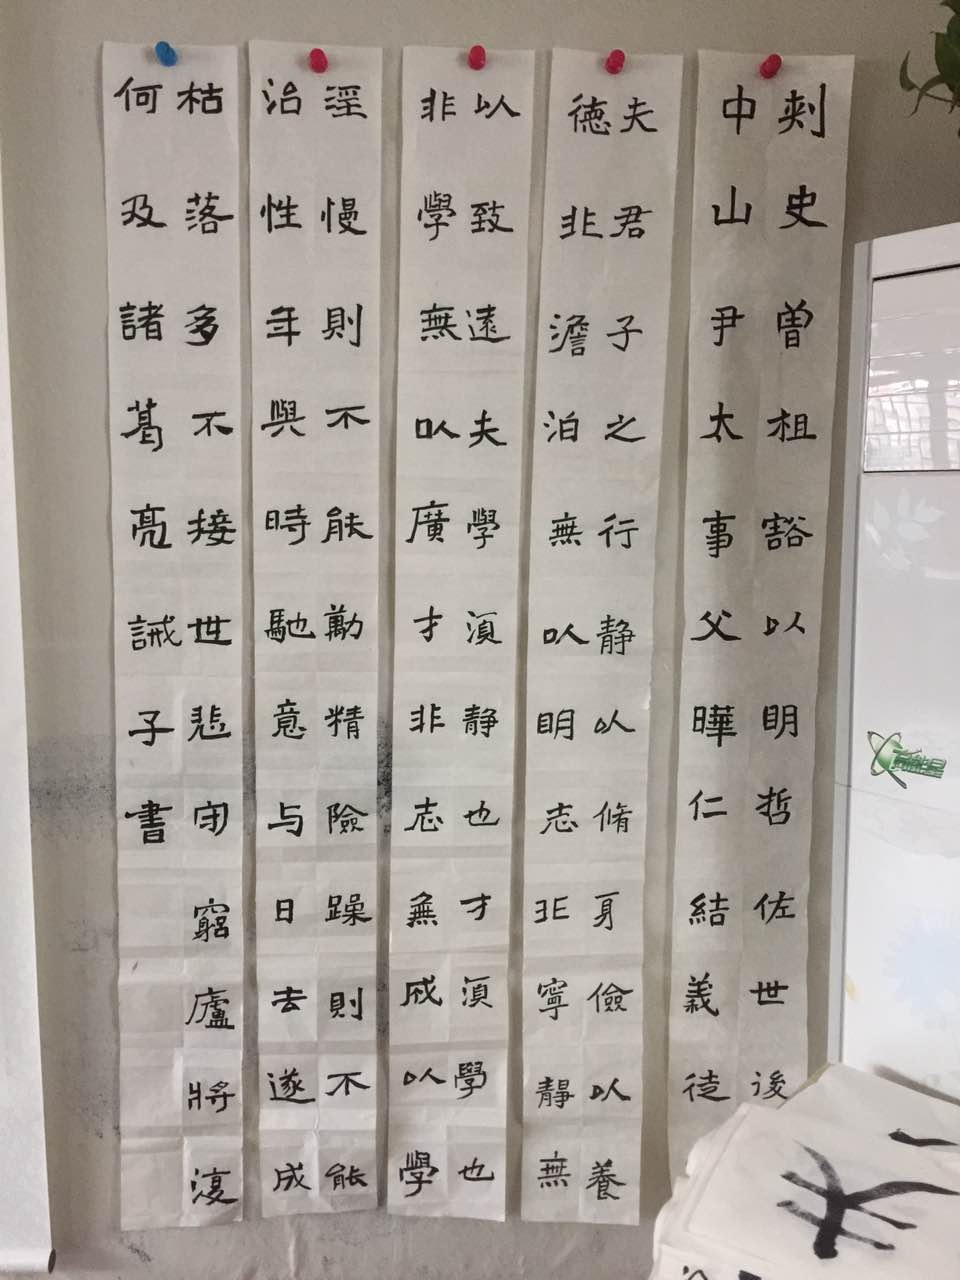 刺史曾祖豁以明哲佐世後
中山尹太事父曄仁結義徒
夫君子之行静以脩身儉以養
德非澹泊無以明志非寧靜無
以致遠夫學湏静也才湏學也
非學無以廣才非志無成以學
淫慢則不能勵精險躁則不能
治性年與時馳意与日去遂成
枯落多不接世悲守窮廬將復
何及諸葛亮誡子書